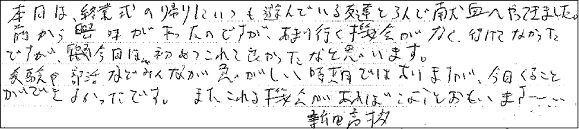 本日は、終業式の帰りにいつも遊んでいる友達と3人で献血へやってきました。
前から興味があったのですが、あまり行く機会がなく、行けてなかった
ですが、今日は初めてこれて良かったなと思います。
受験や部活などみんなが忙がしい時期ではありますが、今日くること
ができてよかったです。またこれる機会があればこようとおもいます〜…
新田高校